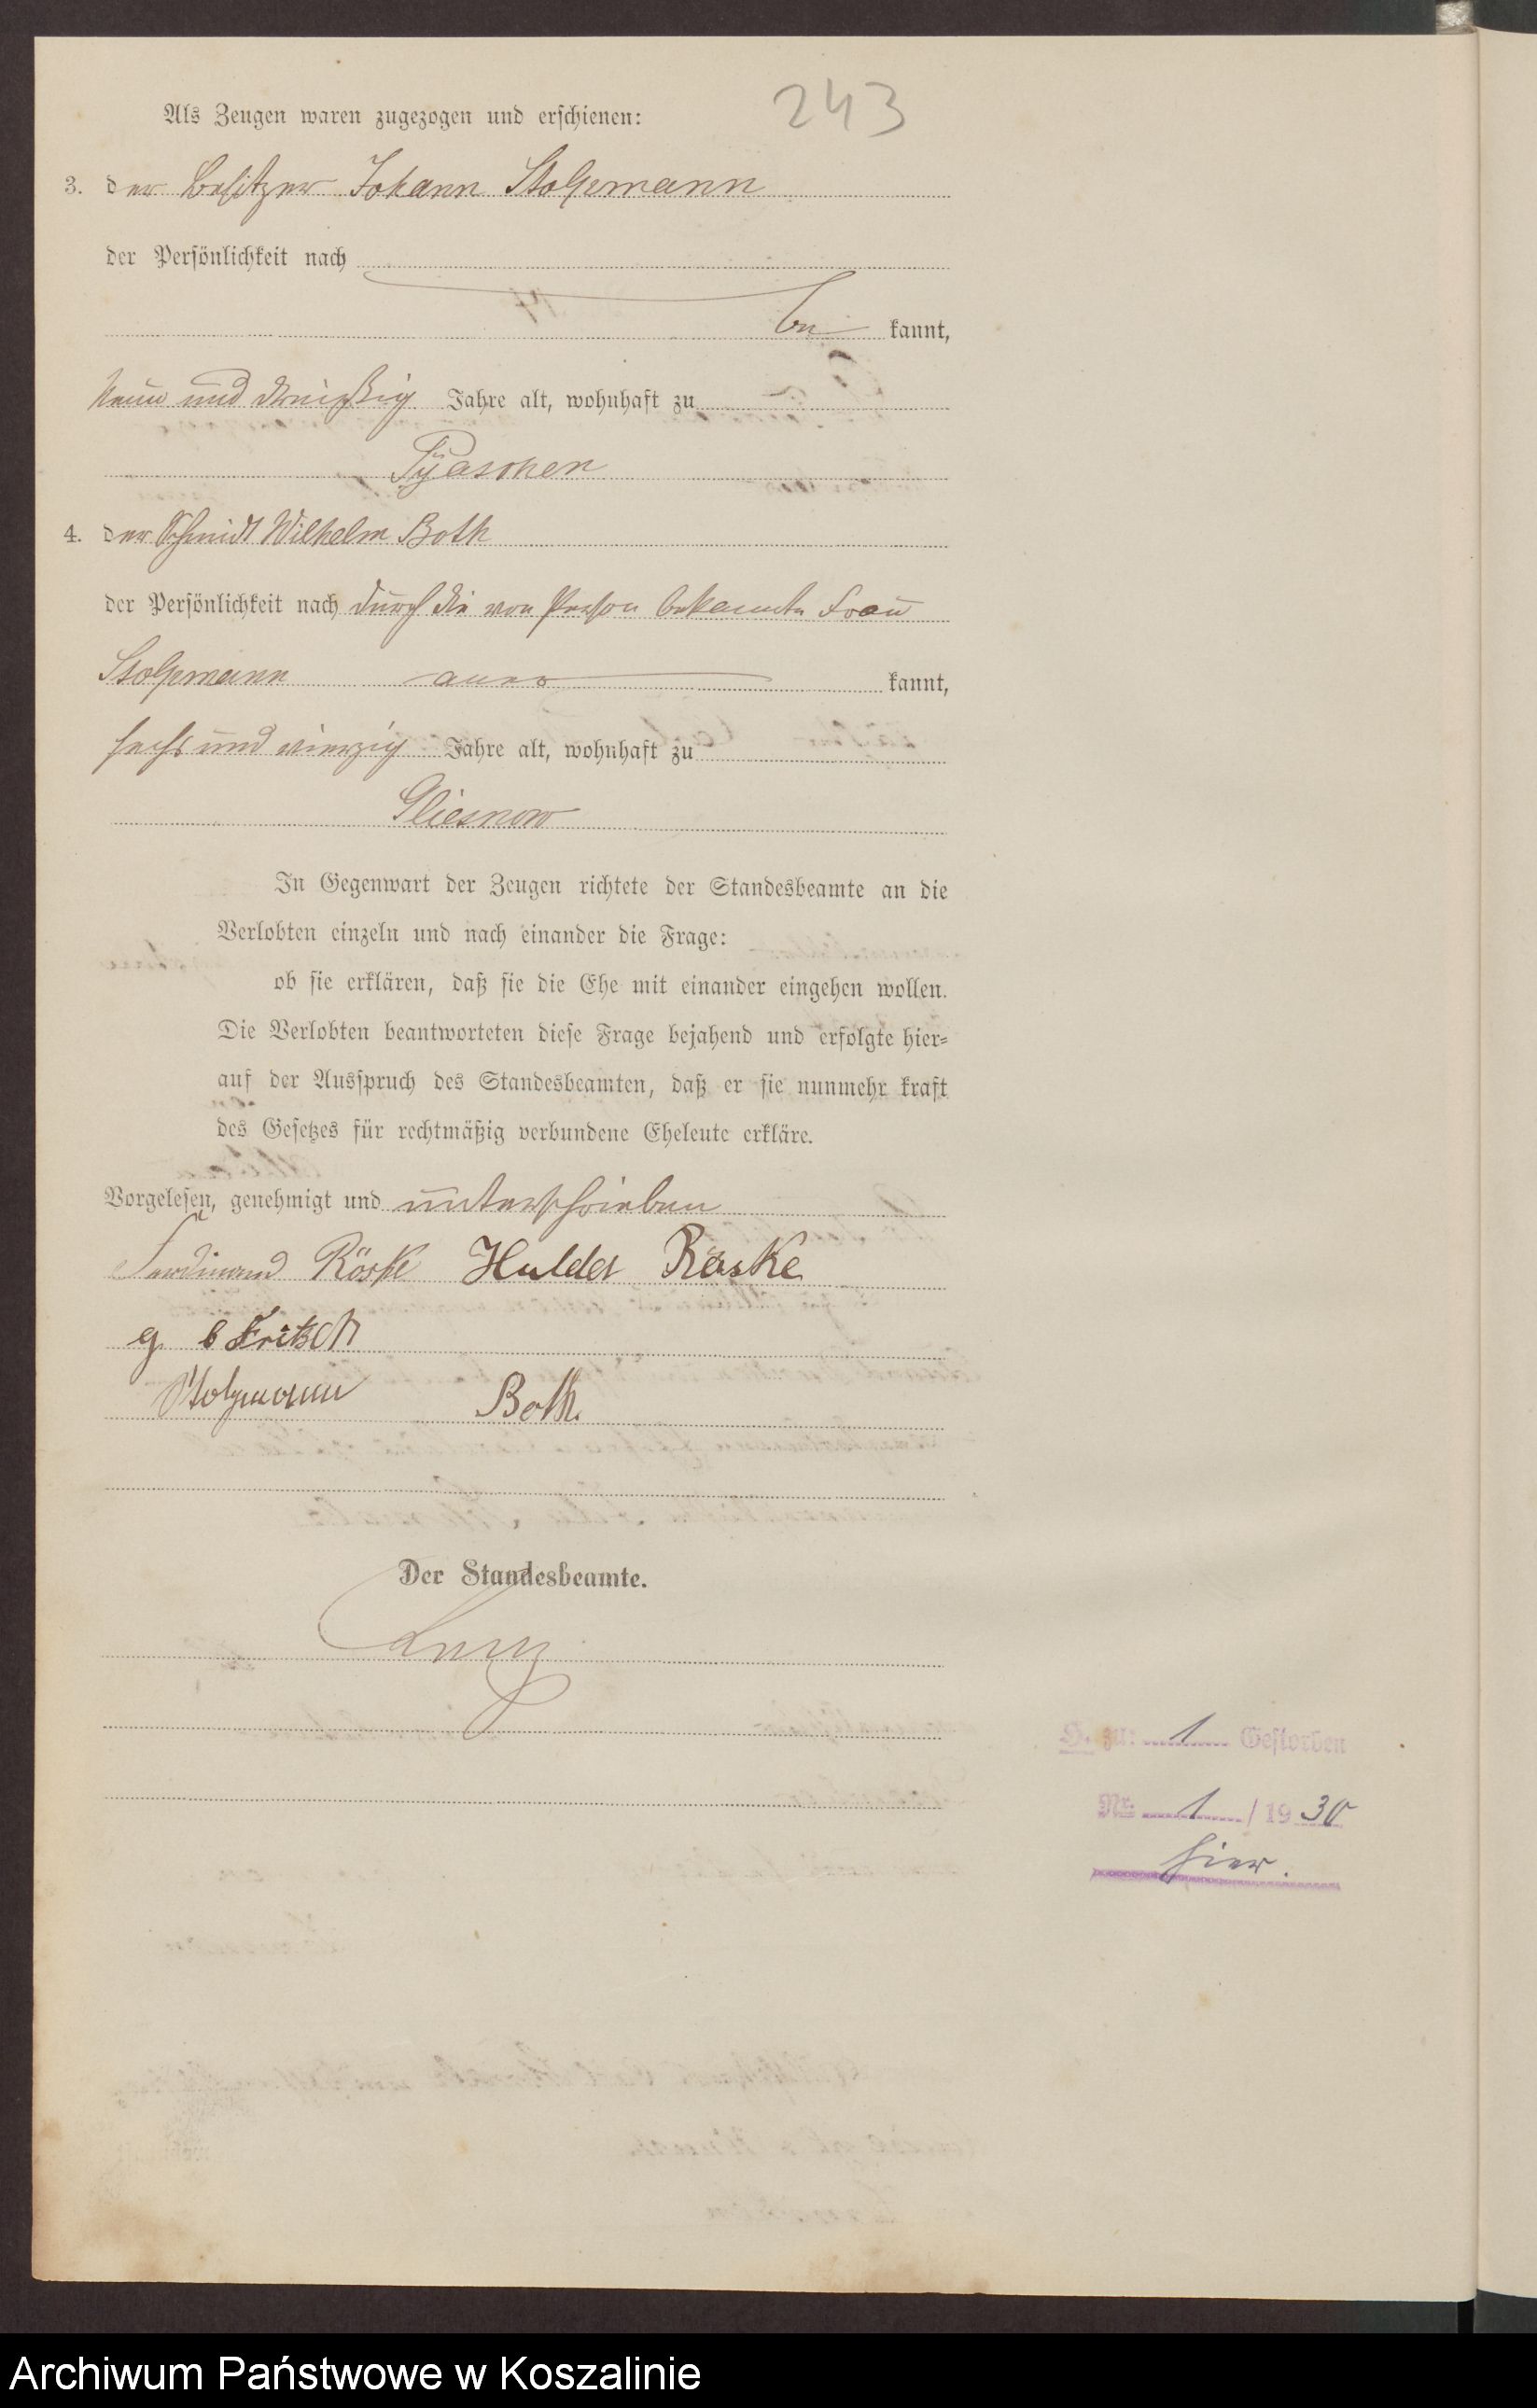 243
Als Zeugen waren zugezogen und erschienen:
3. der Besitzer Johann Stolpmann
der Persönlichkeit nach
be kannt,
neun und dreißig Jahre alt, wohnhaft zu
Pyaschen
4. der Schmidt Wilhelm Both
der Persönlichkeit nach durch die von Person bekannte Frau
Stolpmann aner kannt,
sechs und vierzig Jahre alt, wohnhaft zu
Gliesnow
In Gegenwart der Zeugen richtete der Standesbeamte an die
Verlobten einzeln und nach einander die Frage:
ob sie erklären, daß sie die Ehe mit einander eingehen wollen.
Die Verlobten beantworteten diese Frage bejahend und erfolgte hier=
auf der Ausspruch des Standesbeamten, daß er sie nunmehr kraft
des Gesetzes für rechtmäßig verbundene Eheleute erkläre.
Vorgelesen, genehmigt und unterschrieben
Ferdinand Röske Hulda Röske
g b Fritsch
Stolpmann Both.
Der Standesbeamte.
H. zu: 1 Gestorben
Nr. 1 / 19 30
hier.
Archiwum Państwowe w Koszalinie